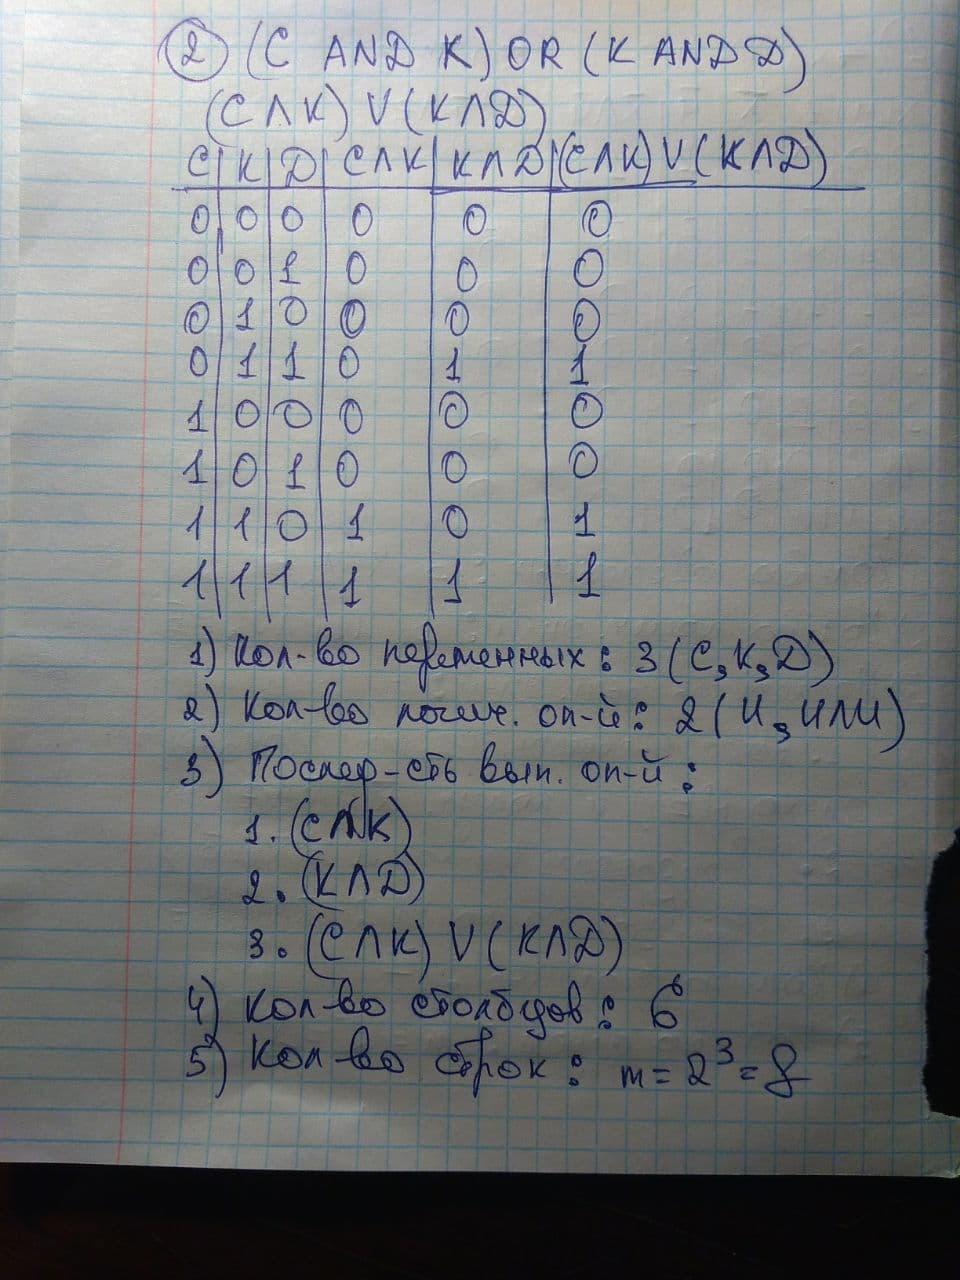 2 (C AND K) OR (K AND Д)
(C Λ K) V (K Λ Д)
C K Д C Λ K K Λ Д (C Λ K) V (K Λ Д)
0 0 0 0 0 0
0 0 1 0 0 0
0 1 0 0 0 0
0 1 1 0 1 1
1 0 0 0 0 0
1 0 1 0 0 0
1 1 0 1 0 1
1 1 1 1 1 1
1) Кол-во переменных: 3 (C, K, Д)
2) Кол-во логич. оп-й: 2 (И, ИЛИ)
3) Послед-сть вып. оп-й:
1. (C Λ K)
2. (K Λ Д)
3. (C Λ K) V (K Λ Д)
4) Кол-во столбцов: 6
5) Кол-во строк: m = 2³ = 8